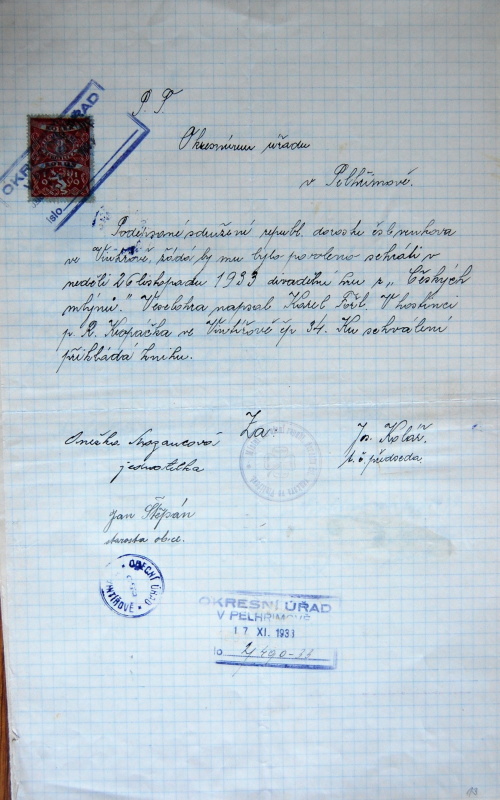 P. T.
OKRESNÍ ÚŘAD
Okresnímu úřadu
v Pelhřimově.
Podepsané sdružení republ. dorostu čsl. venkova
ve Vintířově, žádá by mu bylo povoleno sehráti v
neděli 26 listopadu 1933 divadelní hru z „Českých
mlýnů." Veselohra napsal Karel Fořt. V hostinci
p. R. Kopačka ve Vintířově čp. 34. Ku schválení
přikládá knihu.
Za:
Anežka
jednatelka
Jos. Kolář.
t. č. předseda.
Jan Štěpán
starosta obce.
OBECNÍ ÚŘAD
VINTÍŘOVĚ
OKRESNÍ ÚŘAD
V PELHŘIMOVĚ
17 XI. 1933